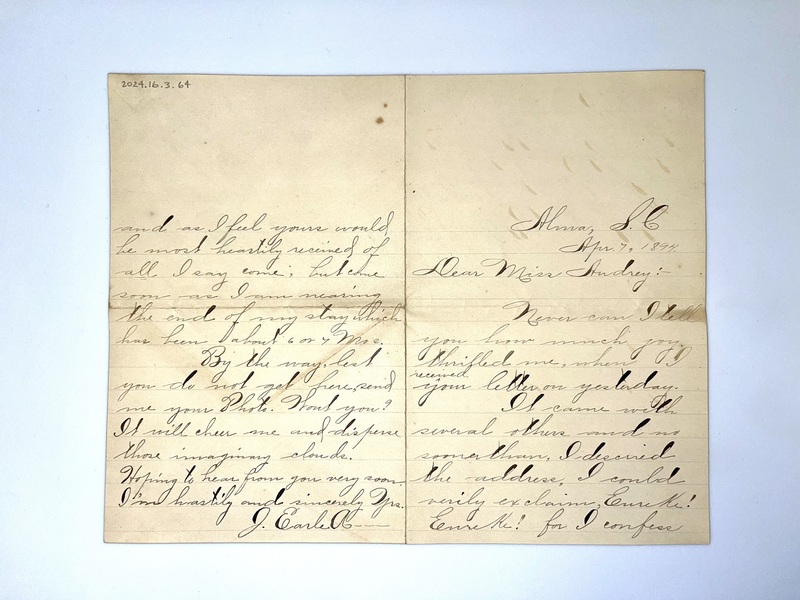 2024.16.3.64
and as I feel yours would
be most heartily received of
all I say come; but come
soon as I am nearing
the end of my stay which
has been about 6 or 7 Mos.
By the way, lest
you do not get here, send
me your Photo. Wont you?
It will cheer me and disperse
those imaginary clouds.
Hoping to hear from you very soon.
I'm hastily and sincerely Yrs.
J. Earle
Alma, S. C
Apr. 7, 1894
Dear Miss Audrey:-
Never can I tell
you how much joy
thrilled me, when I
received
your letter on yesterday.
It came with
several others and no
sooner than, I descried
the address, I could
verily exclaim, Eureka!
Eureka! for I confess